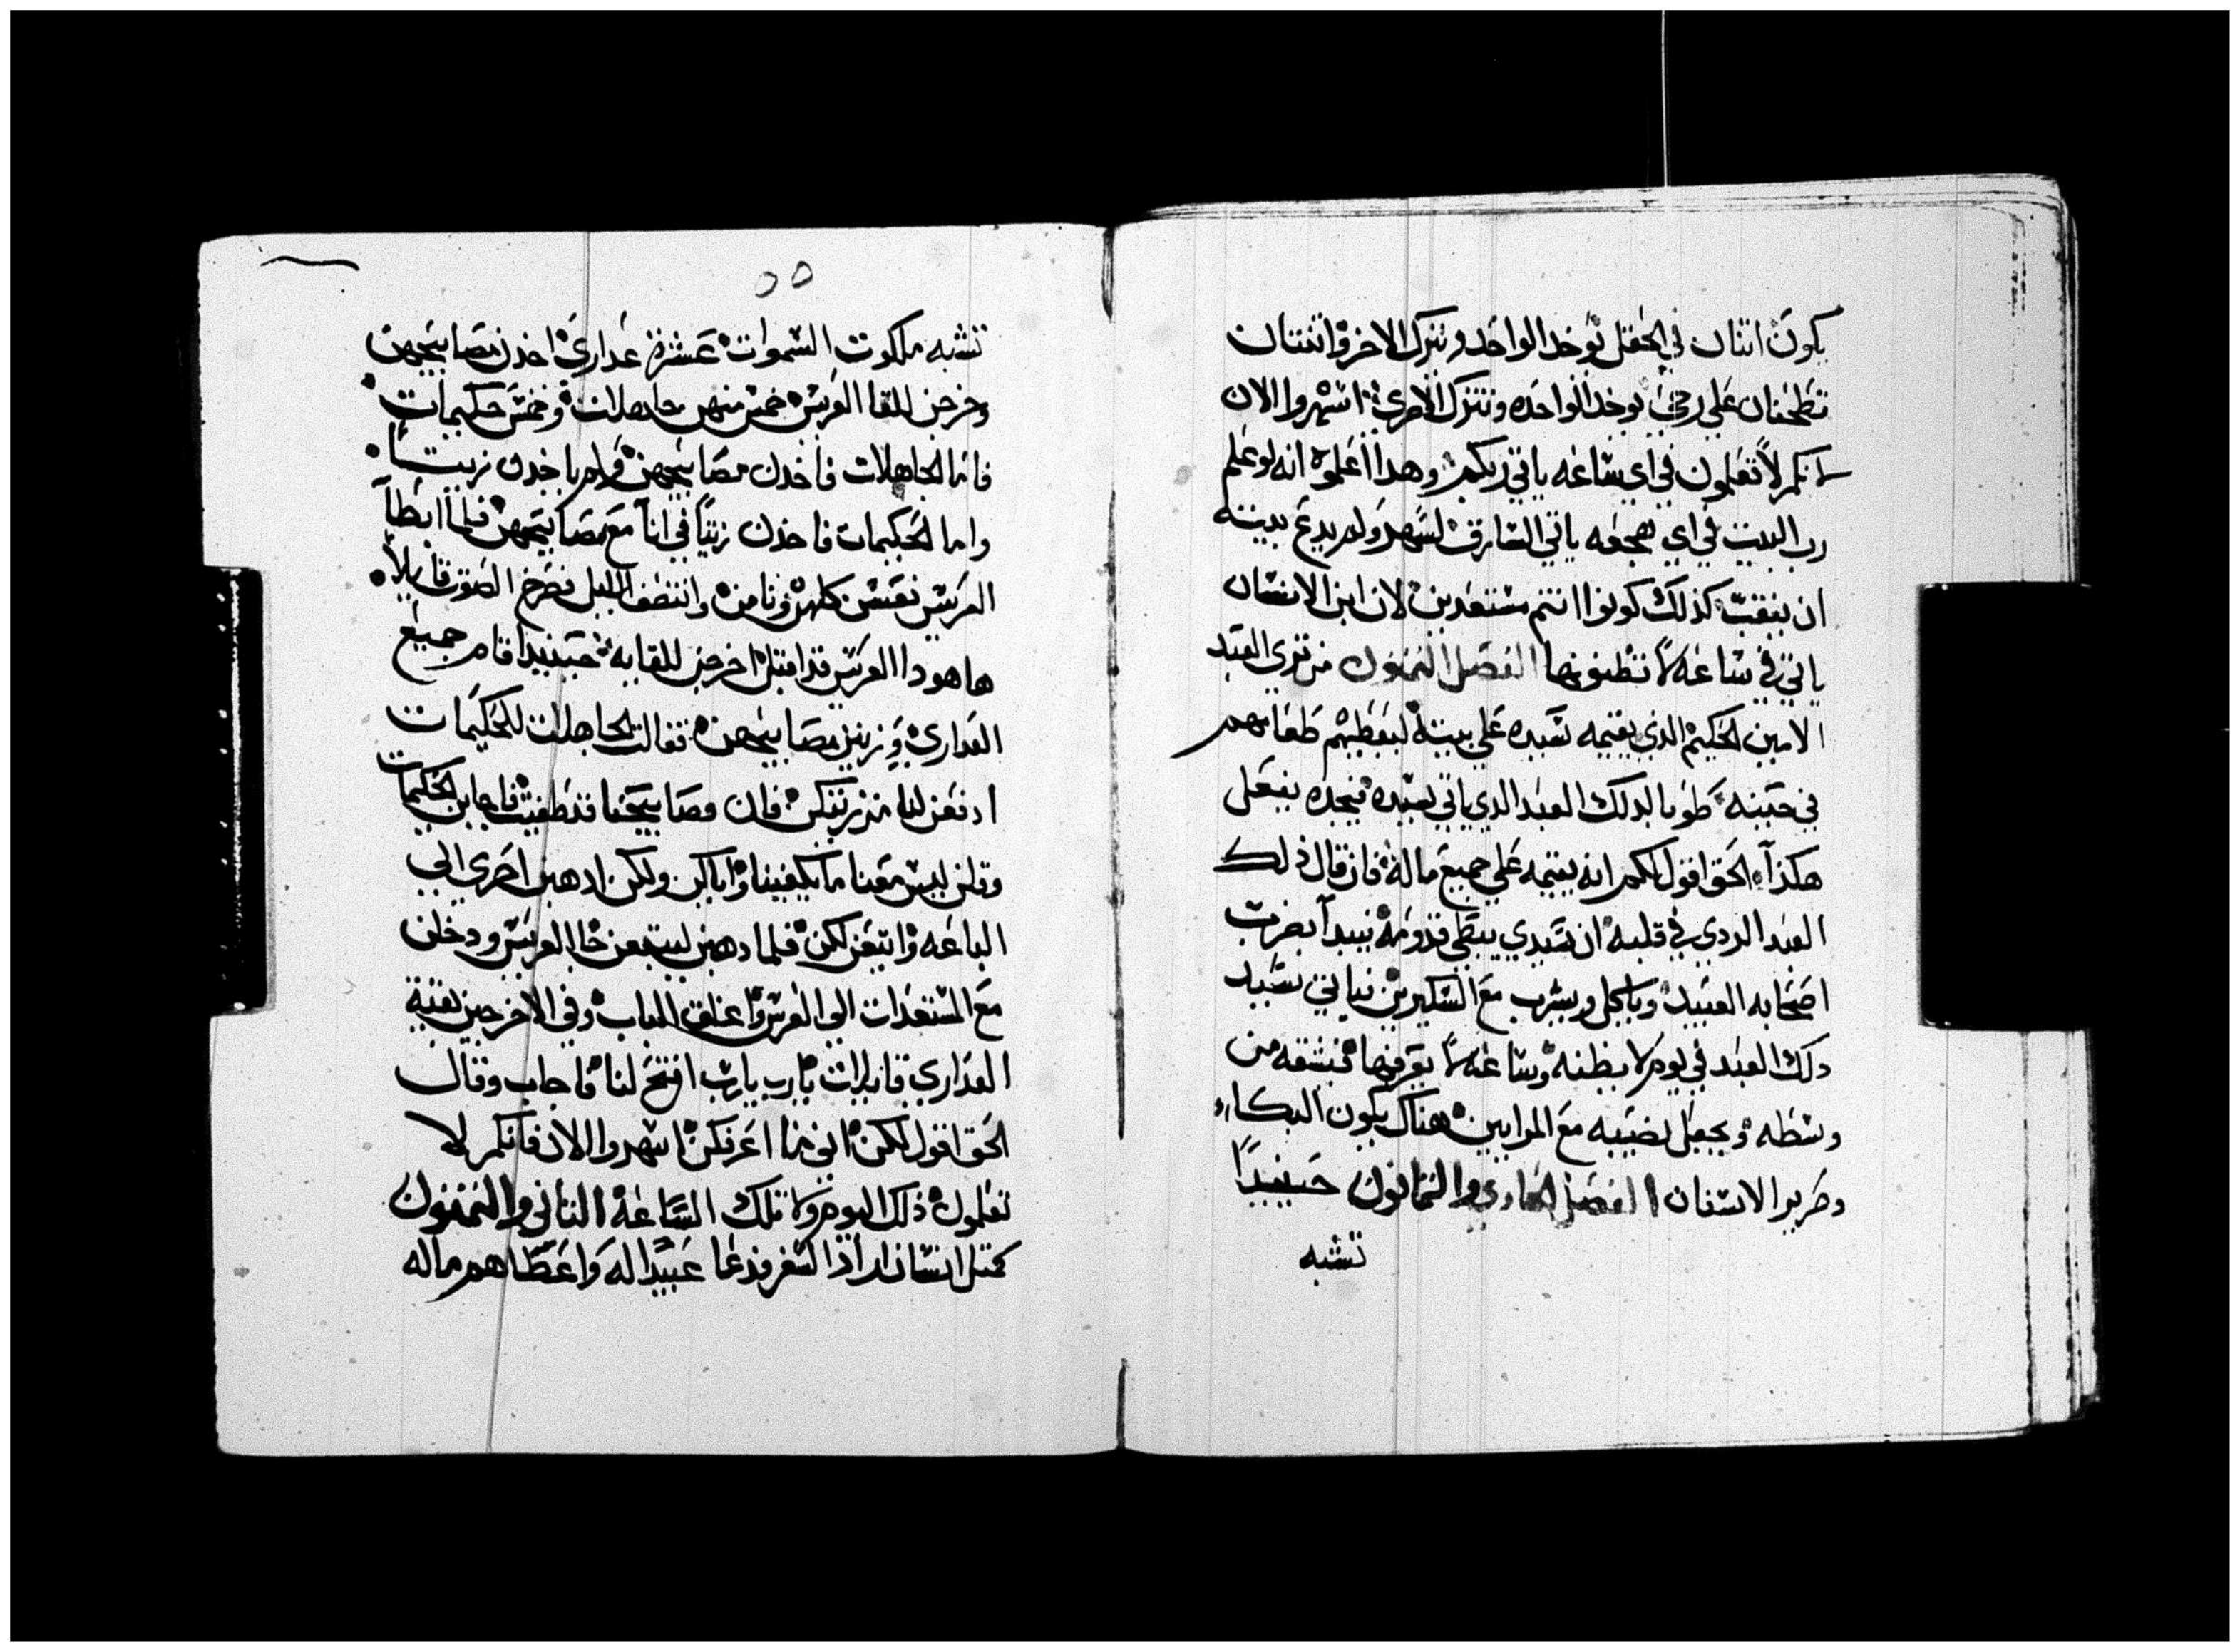 يكون اتنان في الحقل يوخد الواحد ويترك الاخر واتنتان
تطحنان علي رحي يوخد الواحده وتترك الاخري اسهروا الان
لانكم لا تعلمون في اي ساعه ياتي ربكم وهدا اعلموه انه لو علم
رب البيت في اي هجعه ياتي السارق لسهر ولم يدع بيته
ان ينقب كذلك كونوا انتم مستعدين لان ابن الانسان
ياتي في ساعه لا تظنونها الفصل التمنون من تري العبد
الامين الحكيم الذي يقيمه سيده علي بيته ليعطيهم طعامهم
في حينه طوبا لدلك العبد الدي ياتي سيده فيجده يفعل
هكذا الحق اقول لكم انه يقيمه علي جميع ماله فان قال ذلك
العبد الردي في قلبه ان سيدي يبطي قدومه فيبدا بضرب
اصحابه العبيد وياكل ويشرب مع السكيرين فياتي سيد
دلك العبد في يوم لا يظنه وساعه لا يعرفها فيشقه من
وسطه ويجعل نصيبه مع المرايين هناك يكون البكاء
وصرير الاسنان الفصل الحادي والتمانون حينيدا
تشبه
٥٥
تشبه ملكوت السموات عشرة عداري اخدن مصابيحهن
وخرجن للقا العريس خمس منهن جاهلات وخمس حكيمات
فاما الجاهلات فاخدن مصابيحهن ولم ياخدن زيتا
واما الحكيمات فاخدن زيتا في انا مع مصابيحهن فلما ابطا
العريس نعسن كلهن ونامن وانتصف الليل فصرخ الصوت قايلا
هاهودا العريس قد اقبل اخرجن للقايه حينيدا قام جميع
العداري وزين مصابيحهن فقالت الجاهلات للحكيمات
ادفعن لنا من زيتكن فان مصابيحنا قد طفيت فاجابن الحكيمات
وقلن ليس معنا ما يكفينا واياكن ولكن ادهبن احري الي
الباعه وابتعن لكن فلما دهبن ليبتعن جا العريس ودخلن
مع المستعدات الي العرس واغلق الباب وفي الاخر جين بقية
العداري قايلات يارب يارب افتح لنا فاجاب وقال
الحق اقول لكن اني ما اعرفكن اسهروا الان فانكم لا
تعلمون ذلك اليوم ولا تلك الساعة التاني والتمنون
كمتل انسان اراد السفر فدعا عبيدا له واعطاهم ماله